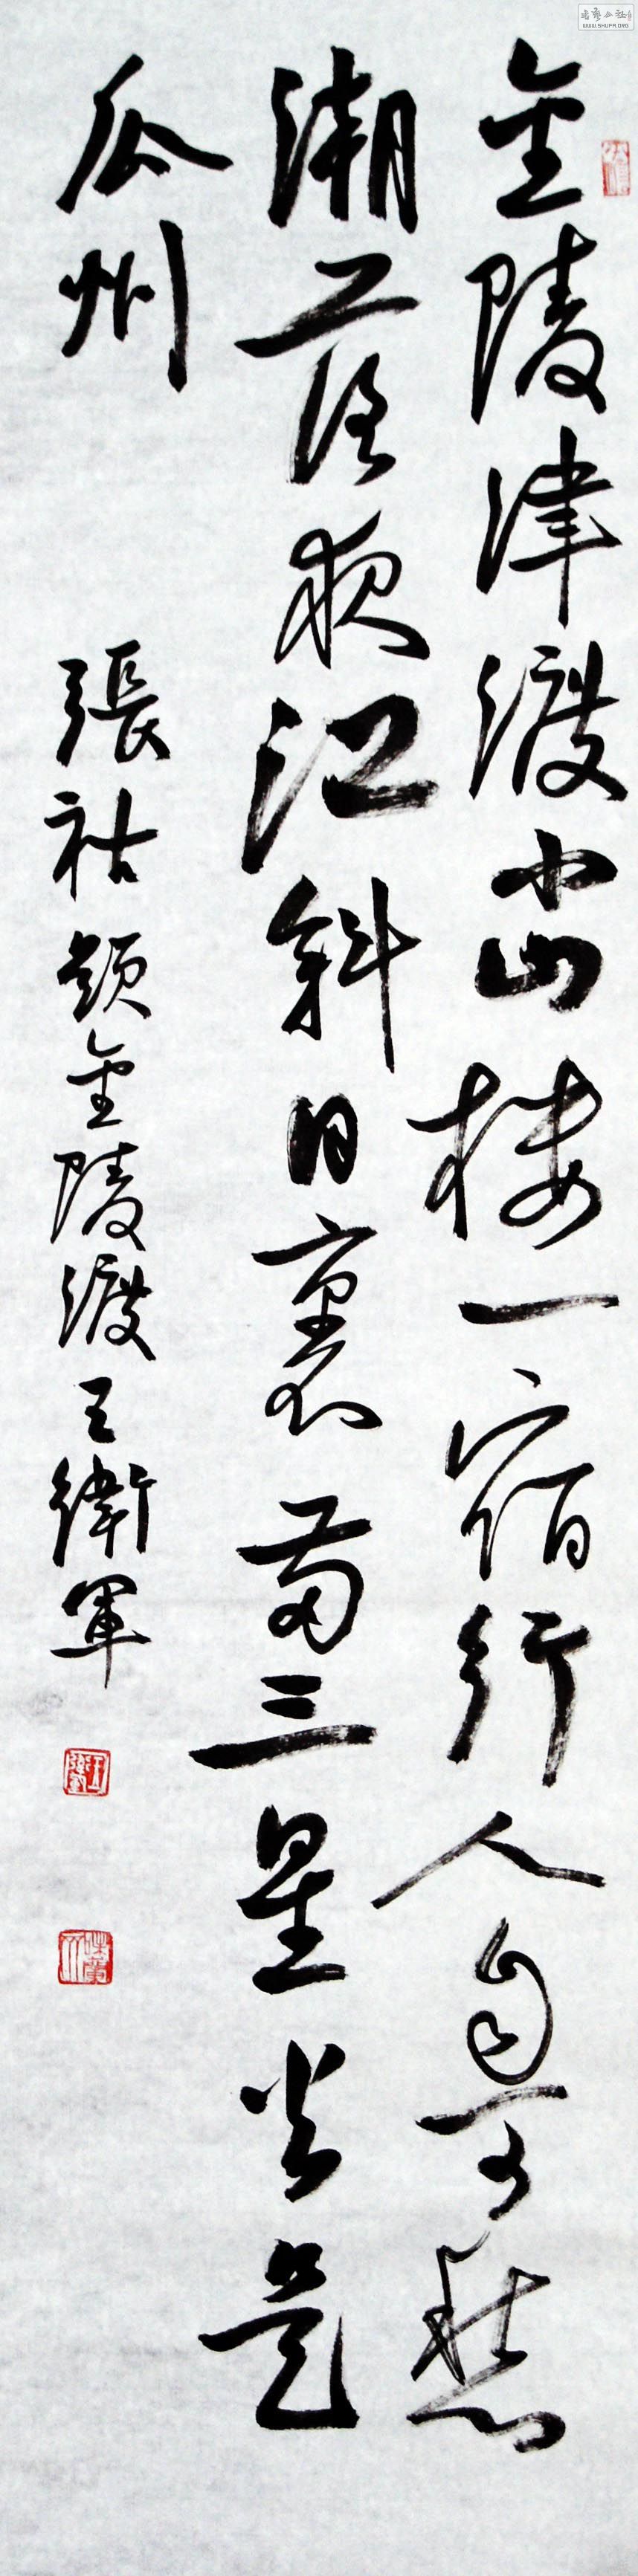 金陵津渡小山楼一宿行人自可愁
潮落夜江斜日裏兩三星火是
瓜州
張祜題金陵渡王衛軍
WWW.SHUFA.ORG